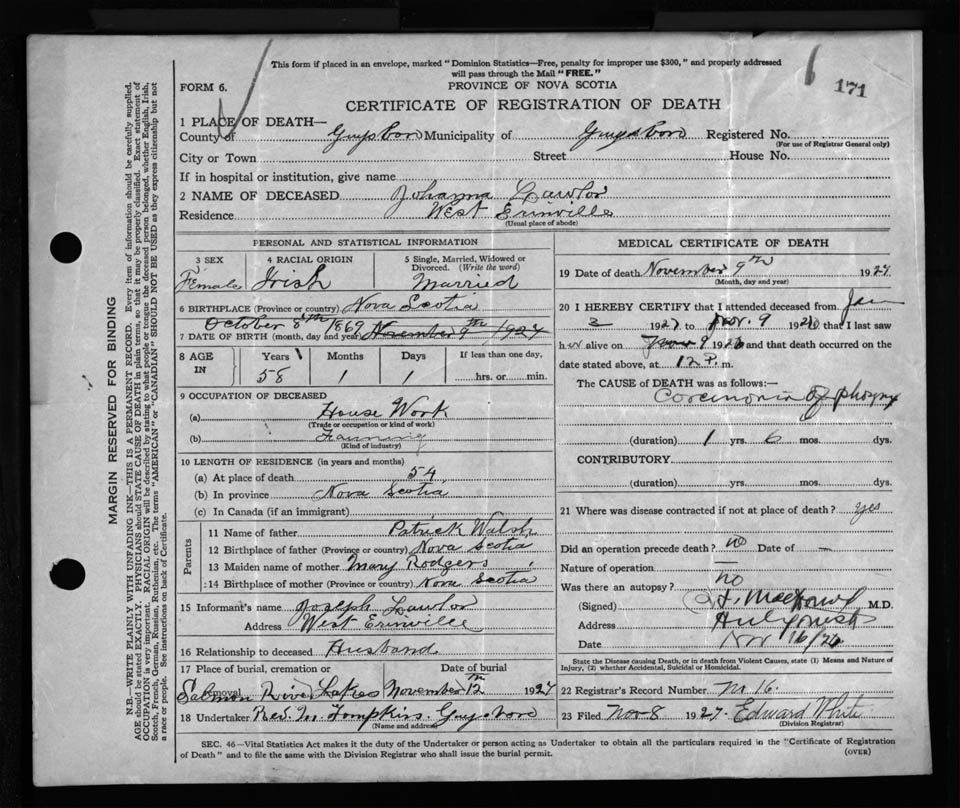 This form if placed in an envelope, marked "Dominion Statistics—Free, penalty for improper use $300," and properly addressed
will pass through the Mail "FREE."
171
FORM 6.
PROVINCE OF NOVA SCOTIA
CERTIFICATE OF REGISTRATION OF DEATH
1 PLACE OF DEATH—
County of Guysboro Municipality of Guysboro Registered No.
(For use of Registrar General only)
City or Town Street House No.
If in hospital or institution, give name
2 NAME OF DECEASED Johanna Lawlor
Residence West Erinville
(Usual place of abode)
PERSONAL AND STATISTICAL INFORMATION
3 SEX 4 RACIAL ORIGIN 5 Single, Married, Widowed or
Divorced. (Write the word)
Female Irish Married
6 BIRTHPLACE (Province or country) Nova Scotia
October 8th 1869
7 DATE OF BIRTH (month, day and year) November 9th 1927
8 AGE IN Years Months Days If less than one day,
58 1 1 hrs. or min.
9 OCCUPATION OF DECEASED
(a) House Work
(Trade or occupation or kind of work)
(b) Farming
(Kind of industry)
10 LENGTH OF RESIDENCE (in years and months)
(a) At place of death 54
(b) In province Nova Scotia
(c) In Canada (if an immigrant)
Parents
11 Name of father Patrick Walsh
12 Birthplace of father (Province or country) Nova Scotia
13 Maiden name of mother Mary Rodgers
14 Birthplace of mother (Province or country) Nova Scotia
15 Informant's name Joseph Lawlor
Address West Erinville
16 Relationship to deceased Husband
17 Place of burial, cremation or removal Date of burial
Salmon River Lakes November 12th 1927
18 Undertaker Rev. Tompkins Guysboro
(Name and address)
MEDICAL CERTIFICATE OF DEATH
19 Date of death November 9th 1927
(Month, day and year)
20 I HEREBY CERTIFY that I attended deceased from Jan
2 1927 to Nov. 9 1926 that I last saw
her alive on 9 1926 and that death occurred on the
date stated above, at 12 P. m.
The CAUSE of DEATH was as follows:—
(duration) 1 yrs. 6 mos. dys.
CONTRIBUTORY
(duration) yrs. mos. dys.
21 Where was disease contracted if not at place of death? yes
Did an operation precede death? no Date of —
Nature of operation —
Was there an autopsy? no
(Signed) M.D.
Address
Date Nov 16/26
State the Disease causing Death, or in death from Violent Causes, state (1) Means and Nature of
Injury, (2) whether Accidental, Suicidal or Homicidal.
22 Registrar's Record Number 16
23 Filed Nov 8 1927 Edward White
(Division Registrar)
SEC. 46—Vital Statistics Act makes it the duty of the Undertaker or person acting as Undertaker to obtain all the particulars required in the "Certificate of Registration
of Death" and to file the same with the Division Registrar who shall issue the burial permit.
(OVER)
MARGIN RESERVED FOR BINDING
N.B.—WRITE PLAINLY WITH UNFADING INK—THIS IS A PERMANENT RECORD. Every item of information should be carefully supplied.
AGE should be stated EXACTLY. PHYSICIANS should STATE CAUSE OF DEATH in plain terms, so that it may be properly classified. Exact statement of
OCCUPATION is very important. RACIAL ORIGIN will be described by stating to what people or tongue the deceased person belonged, whether English, Irish,
Scotch, French, German, Russian, Ruthenian, etc. The terms "AMERICAN" or "CANADIAN" SHOULD NOT BE USED as they express citizenship but not
a race or people. See instructions on back of Certificate.